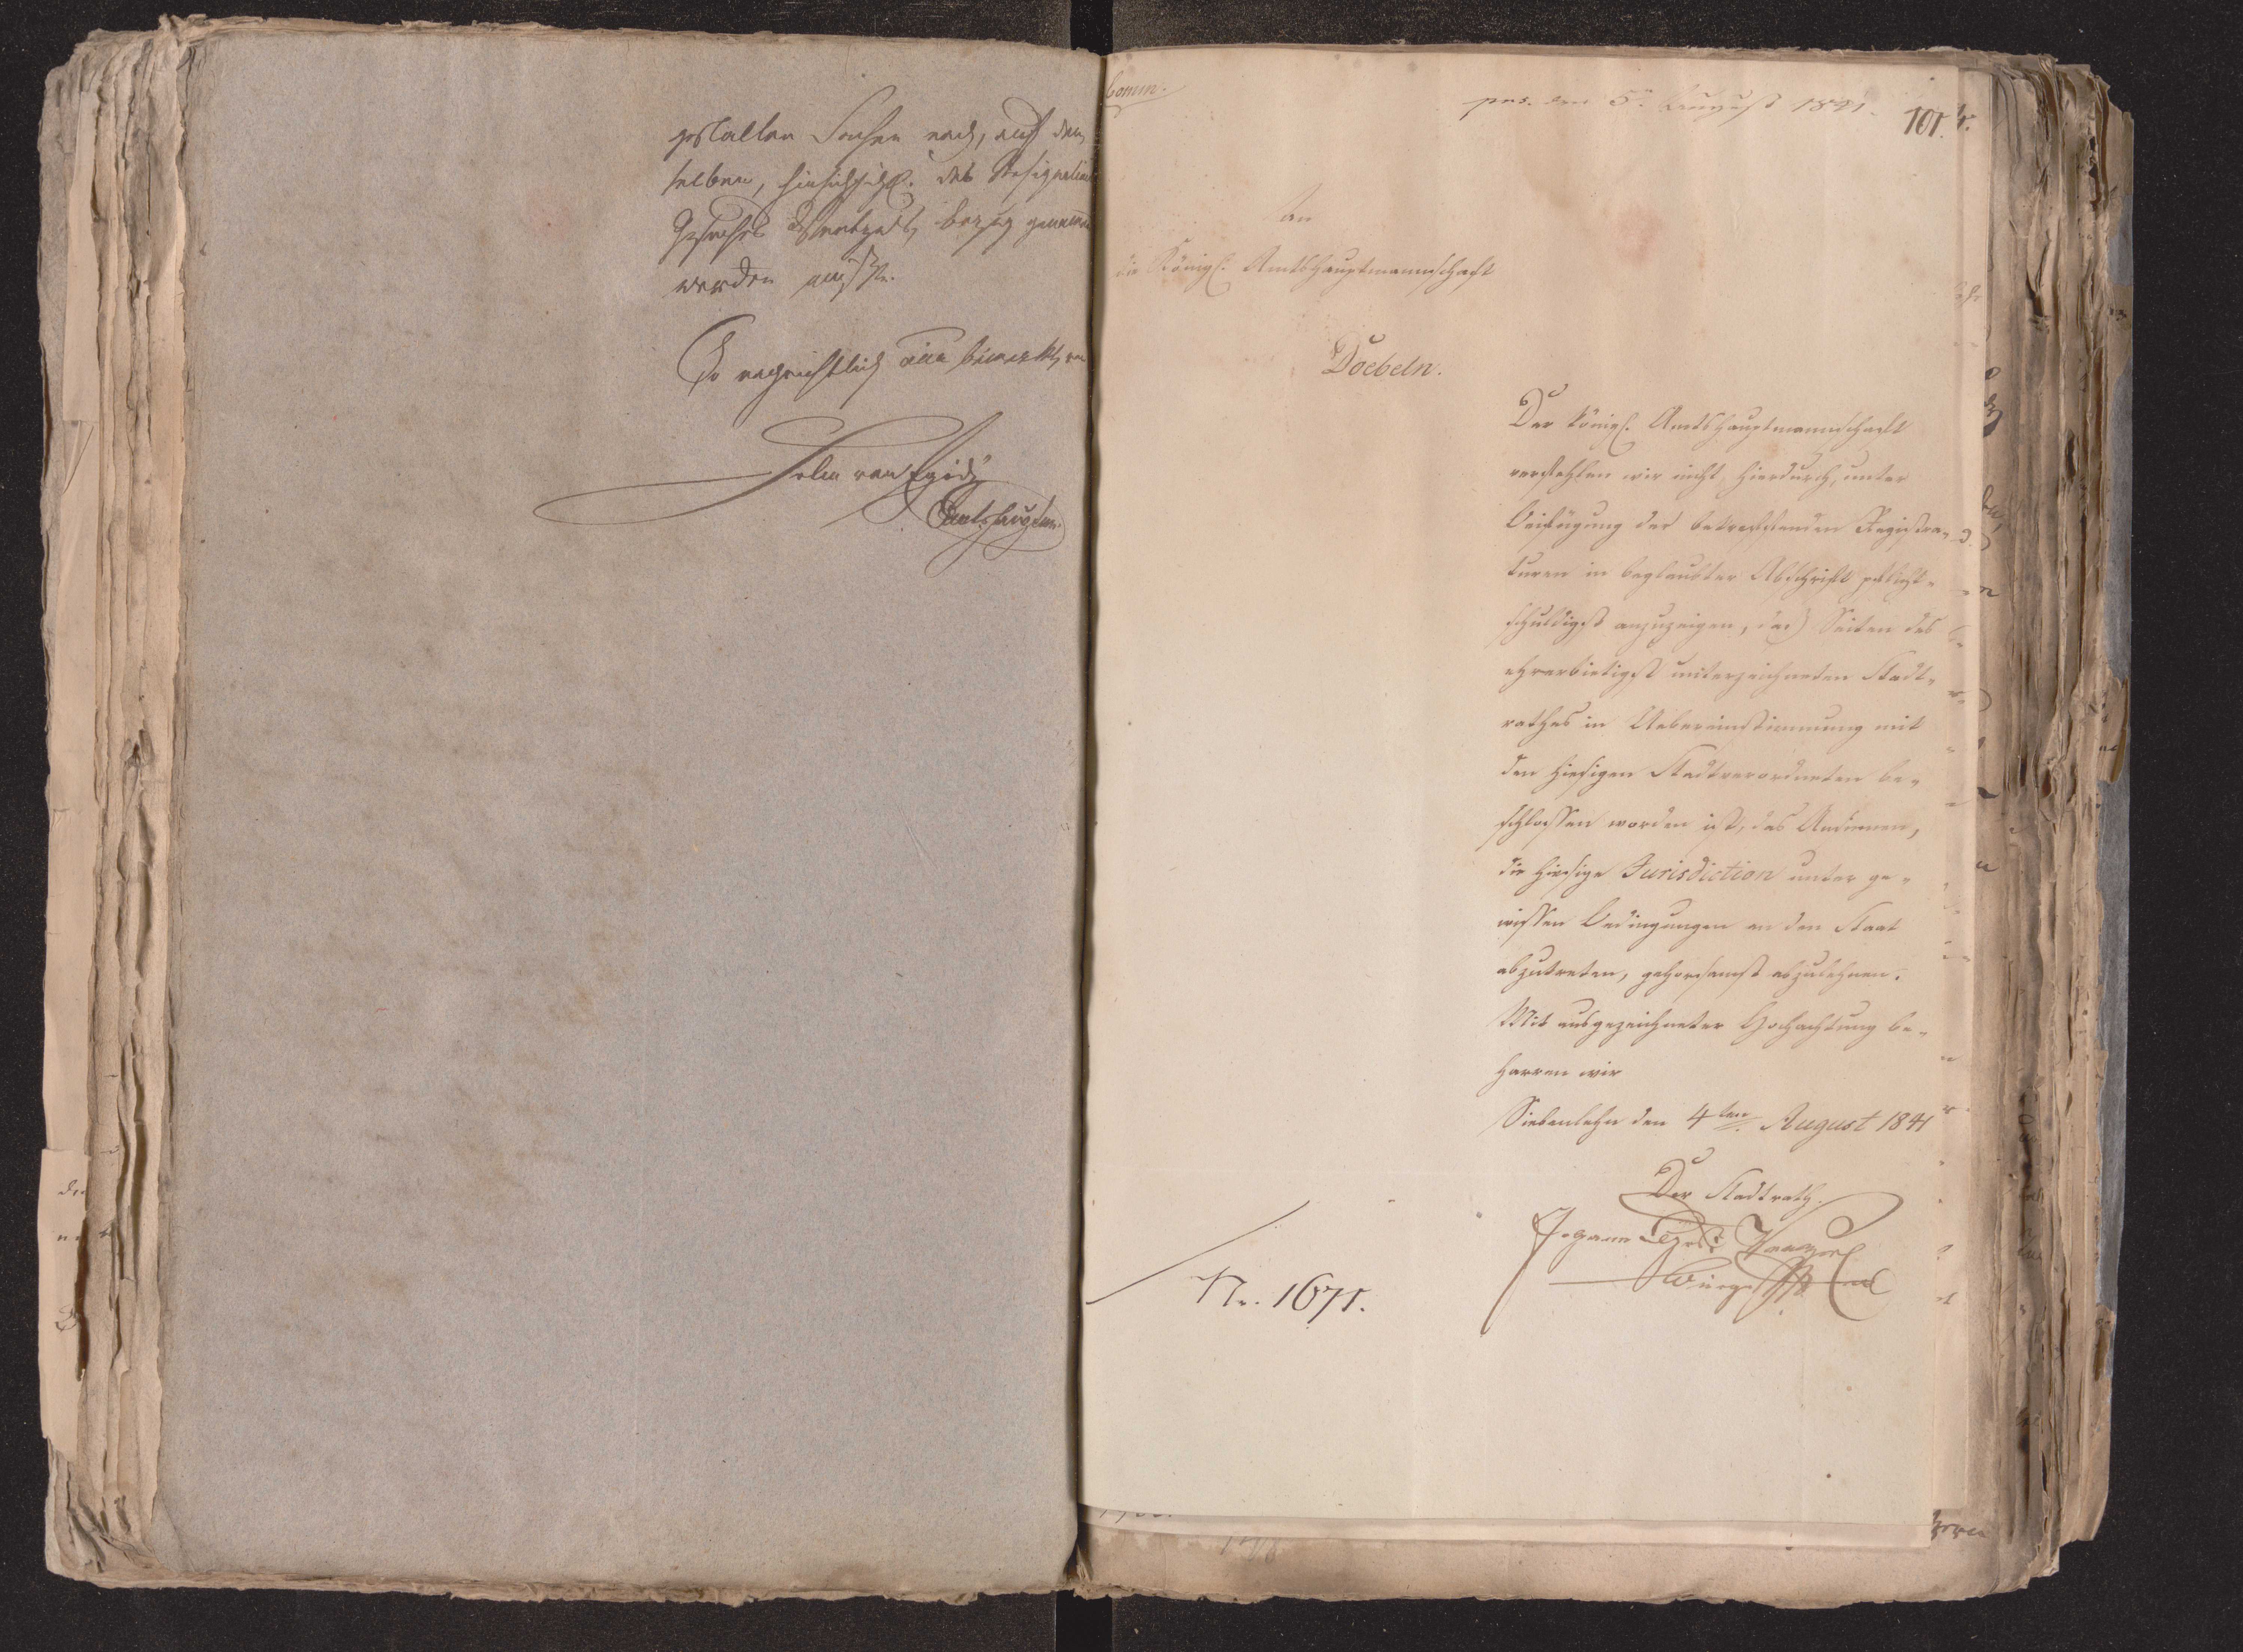 gestalten Sachen nach, auf den
selben, hinsichtlich des Resignations
Gesuches Bezug genommen
werden müßte.
So nachrichtlich anher bemerkt, von
Julin von Egidy
Amtshauptm.
Comm.
pns. den 5. August 1841.
101.
An
die Königl. Amtshauptmannschaft
Doebeln.
Der Königl. Amtshauptmannschaft
verfehlen wir nicht, hierdurch, unter
Beifügung der betreffenden Registra-
turen in beglaubter Abschrift pflicht-
schuldigst anzuzeigen, daß Seiten des
ehrerbietigst unterzeichneten Stadt-
rathes in Uebereinstimmung mit
den hiesigen Stadtverordneten be-
schlossen worden ist, das Ansinnen,
die hiesige Jurisdiction unter ge-
wissen Bedingungen an den Staat
abzutreten, gehorsamst abzulehnen.
Mit ausgezeichneter Hochachtung be-
harren wir
Siebenlehn den 4ten August 1841
Der Stadtrath.
Johann
Nr. 1671.